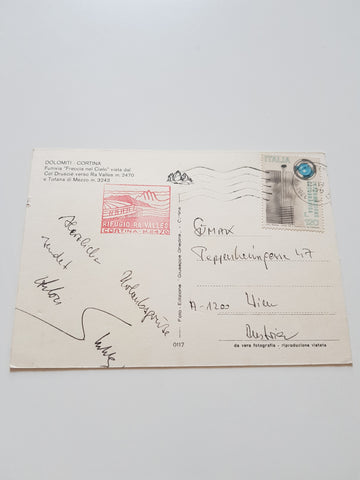 DOLOMITI - CORTINA
Funivia "Freccia nel Cielo" vista dal
Col Drusciè verso Ra Valles m. 2470
e Tofana di Mezzo m. 3243
ITALIA
RIFUGIO RA VALLES
CORTINA - M. 2470
Herzliche
Urlaubsgrüsse
sendet
Pappenheimgasse 47
A-1200 Wien
Austria
Foto Edizione Giuseppe Ghedina - Cortina
0117
da vera fotografia - riproduzione vietata